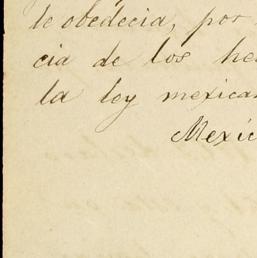 le obedecia, por
cia de los he
la ley mexica
Mexic